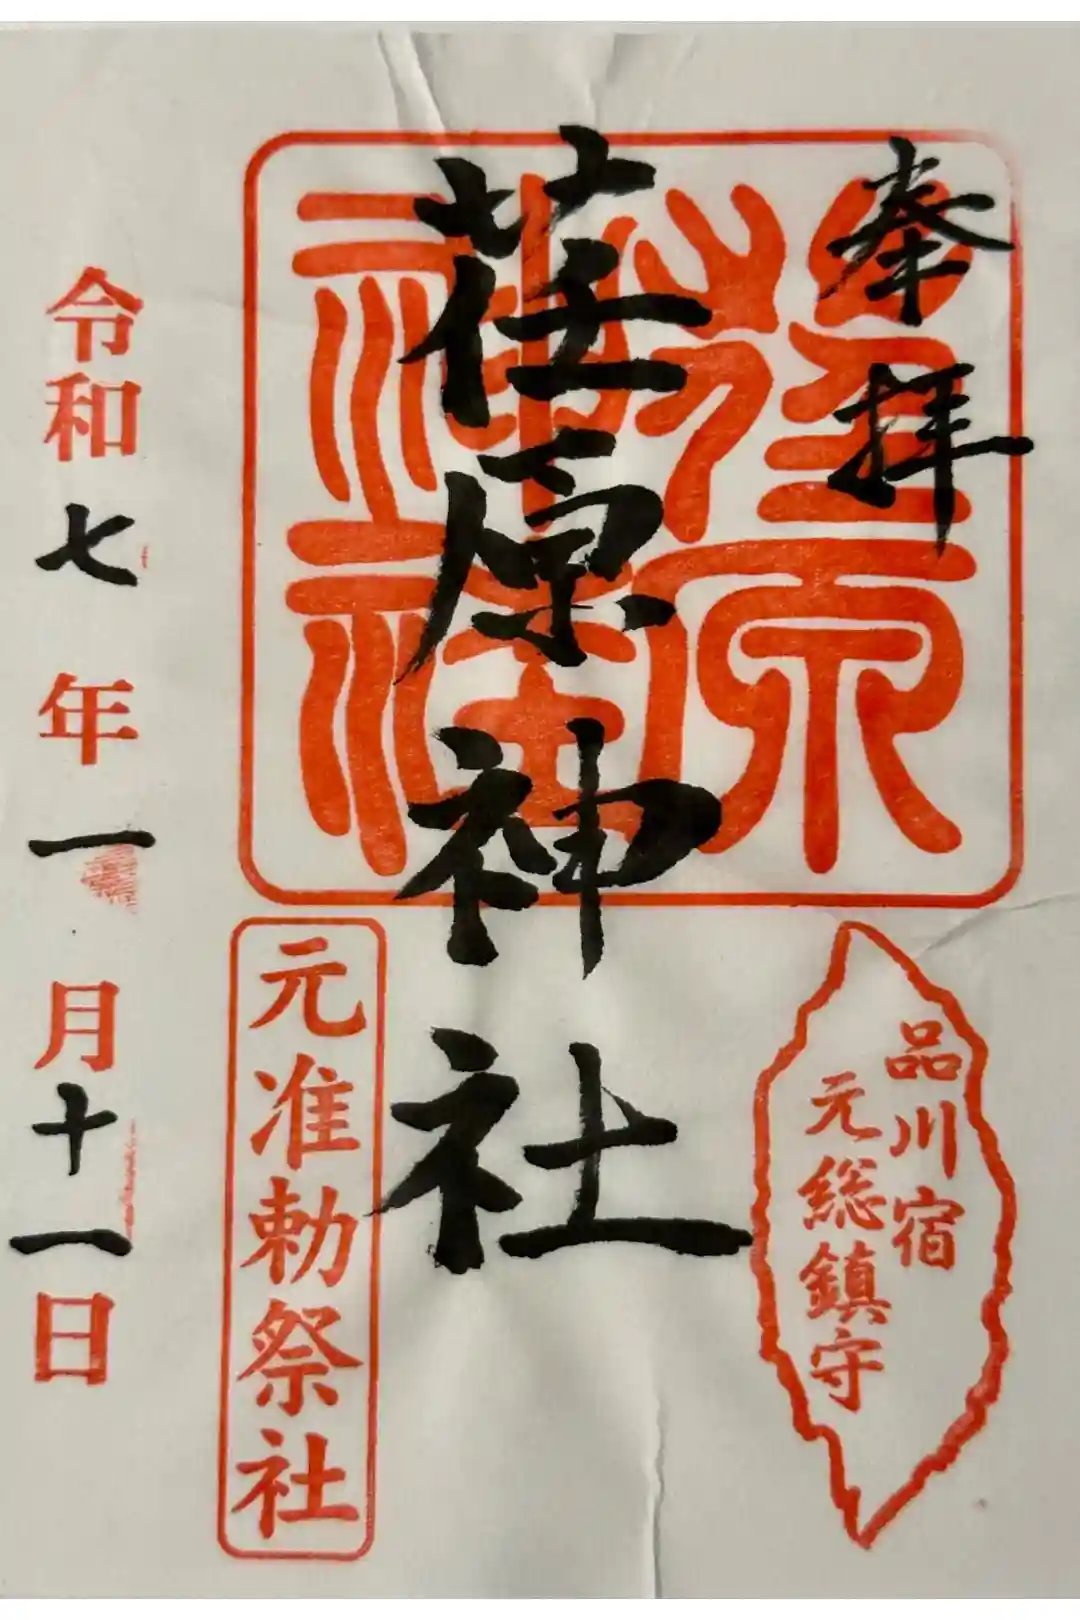 奉拝
荏原神社
荏原神社
品川宿
元総鎮守
元准勅祭社
令和七年一月十一日